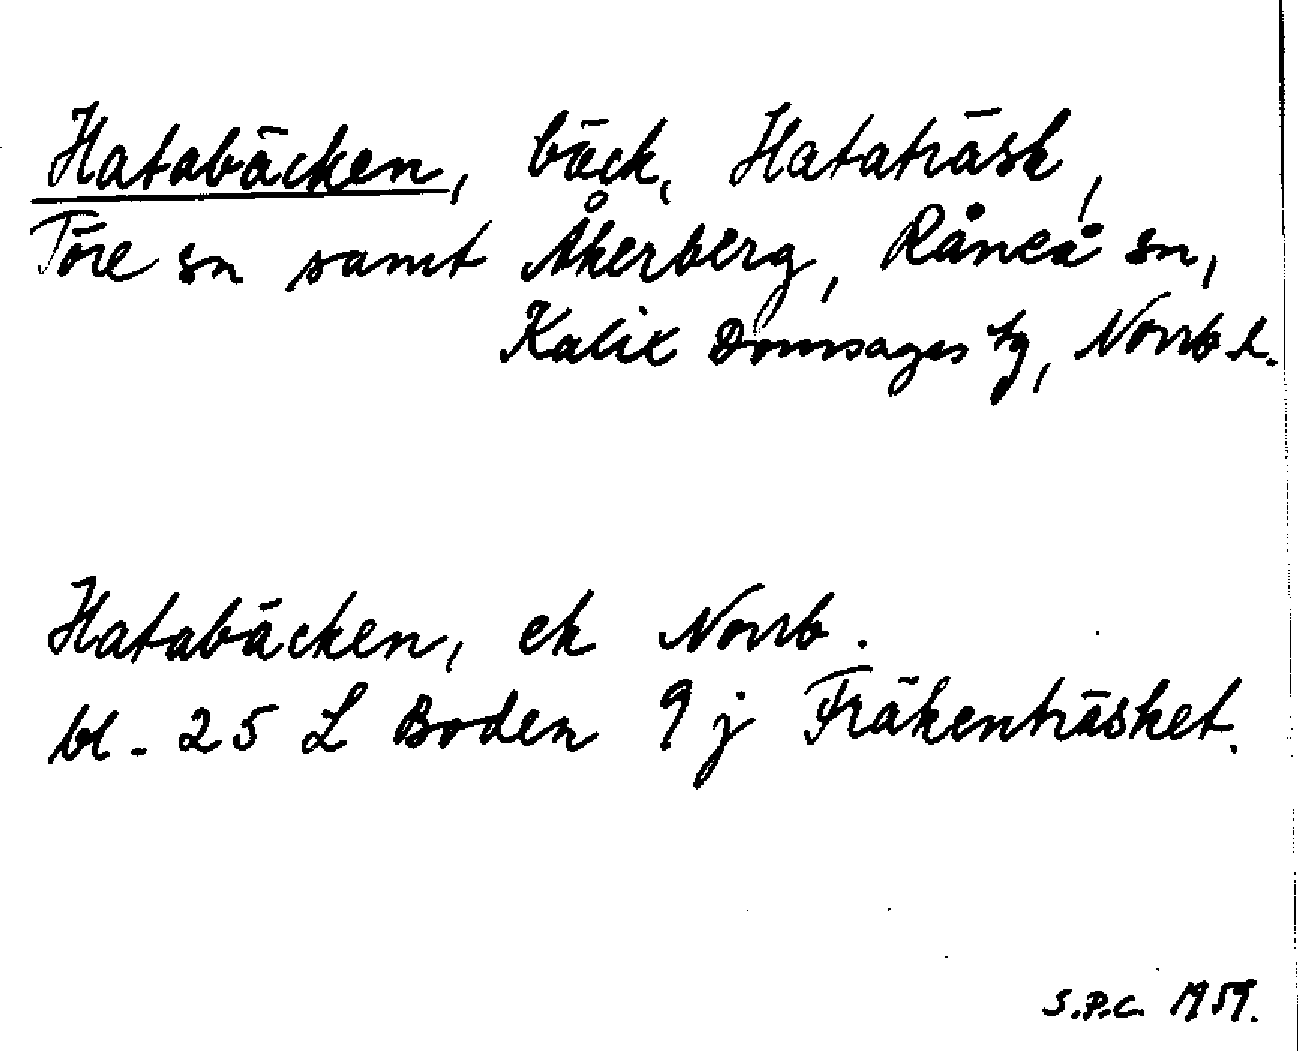 Hatabäcken, bäck, Hataträsk,
Töre sn samt Åkerberg, Råneå sn,
Kalix Domsagas tg, Norrb l.
Hatabäcken, ek Norrb.
bl. 25 L Boden 9 j Fräkenträsket.
S.P.C. 1959.